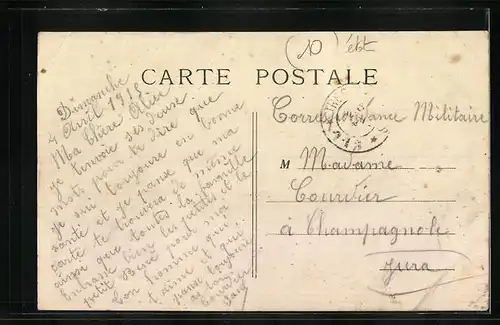 (10) étt
CARTE POSTALE
Dimanche
4 Avril 1915
Ma Chère Alice
je t'envoie ses deux
mots pour te dire que
je suis toujours en bonne
santé et je pense que ma
carte te trouvera de même
ainsi que toutes la famille
Embrasse bien les petits et le
petit René pour ma
bon homme qui
t'aime et qui
pense toujours
Correspondance Militaire
M Madame
Courvier
à Champagnole
Jura